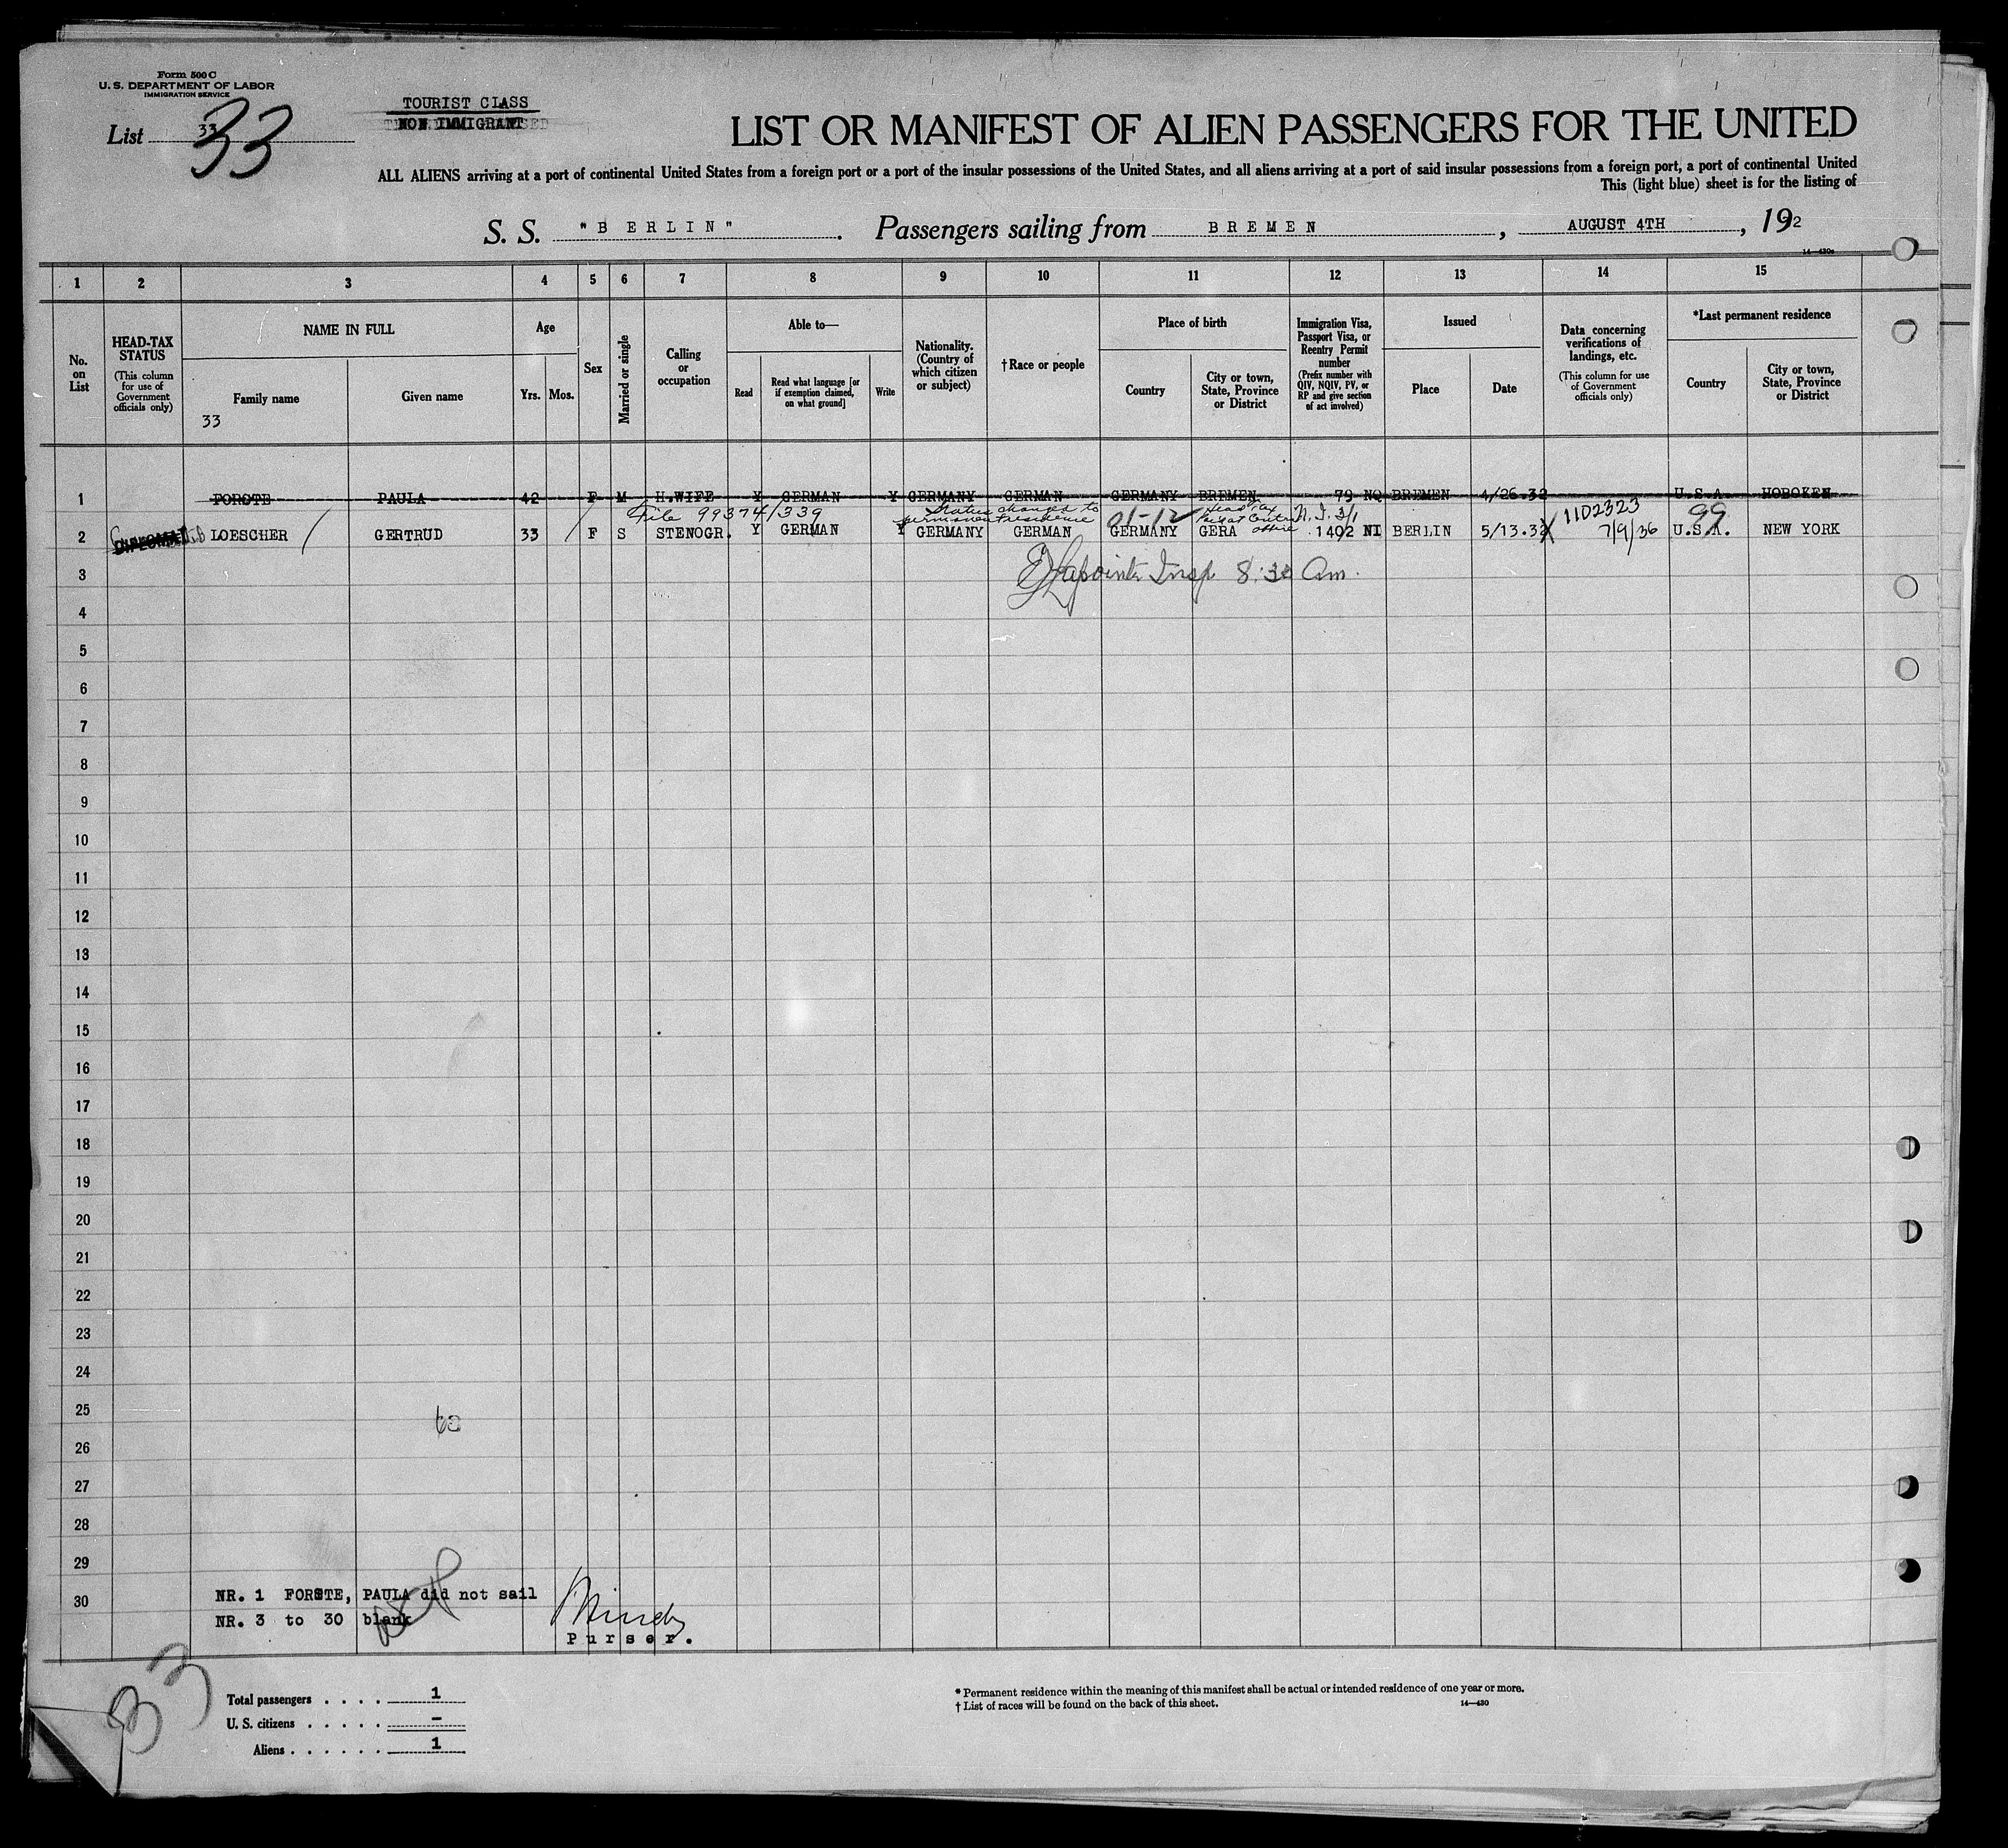 Form 500 C
U. S. DEPARTMENT OF LABOR
IMMIGRATION SERVICE
List 33
33
TOURIST CLASS
NON IMMIGRANT
LIST OR MANIFEST OF ALIEN PASSENGERS FOR THE UNITED
ALL ALIENS arriving at a port of continental United States from a foreign port or a port of the insular possessions of the United States, and all aliens arriving at a port of said insular possessions from a foreign port, a port of continental United
This (light blue) sheet is for the listing of
S. S. "BERLIN". Passengers sailing from BREMEN, AUGUST 4TH, 192
14—430a
1 2 3 4 5 6 7 8 9 10 11 12 13 14 15
No. on List
HEAD-TAX STATUS
(This column for use of Government officials only)
NAME IN FULL
Family name
Given name
33
Age
Yrs. Mos.
Sex
Married or single
Calling or occupation
Able to—
Read
Read what language [or if exemption claimed, on what ground]
Write
Nationality. (Country of which citizen or subject)
†Race or people
Place of birth
Country
City or town, State, Province or District
Immigration Visa, Passport Visa, or Reentry Permit number
(Prefix number with QIV, NQIV, PV, or RP and give section of act involved)
Issued
Place
Date
Data concerning verifications of landings, etc.
(This column for use of Government officials only)
*Last permanent residence
Country
City or town, State, Province or District
1 FORSTE PAULA 42 F M H.WIFE Y GERMAN Y GERMANY GERMAN GERMANY BREMEN 79 NQ BREMEN 4/26.32 U.S.A. HOBOKEN
File 99374/339 Status changed to permanent residence 01-12 Head Tax Paid at Central office N.I. 3/1 1102323 99
2 DIPLOMAT LOESCHER GERTRUD 33 F S STENOGR. Y GERMAN Y GERMANY GERMAN GERMANY GERA 1492 NI BERLIN 5/13.32 7/9/36 U.S.A. NEW YORK
3 Lapointe Insp 8:30 Am.
4
5
6
7
8
9
10
11
12
13
14
15
16
17
18
19
20
21
22
23
24
25
26
27
28
29
30
NR. 1 FORSTE, PAULA did not sail
NR. 3 to 30 blank
Purser.
33
Total passengers . . . . 1
U. S. citizens . . . . . –
Aliens . . . . . . 1
* Permanent residence within the meaning of this manifest shall be actual or intended residence of one year or more.
† List of races will be found on the back of this sheet.
14—430